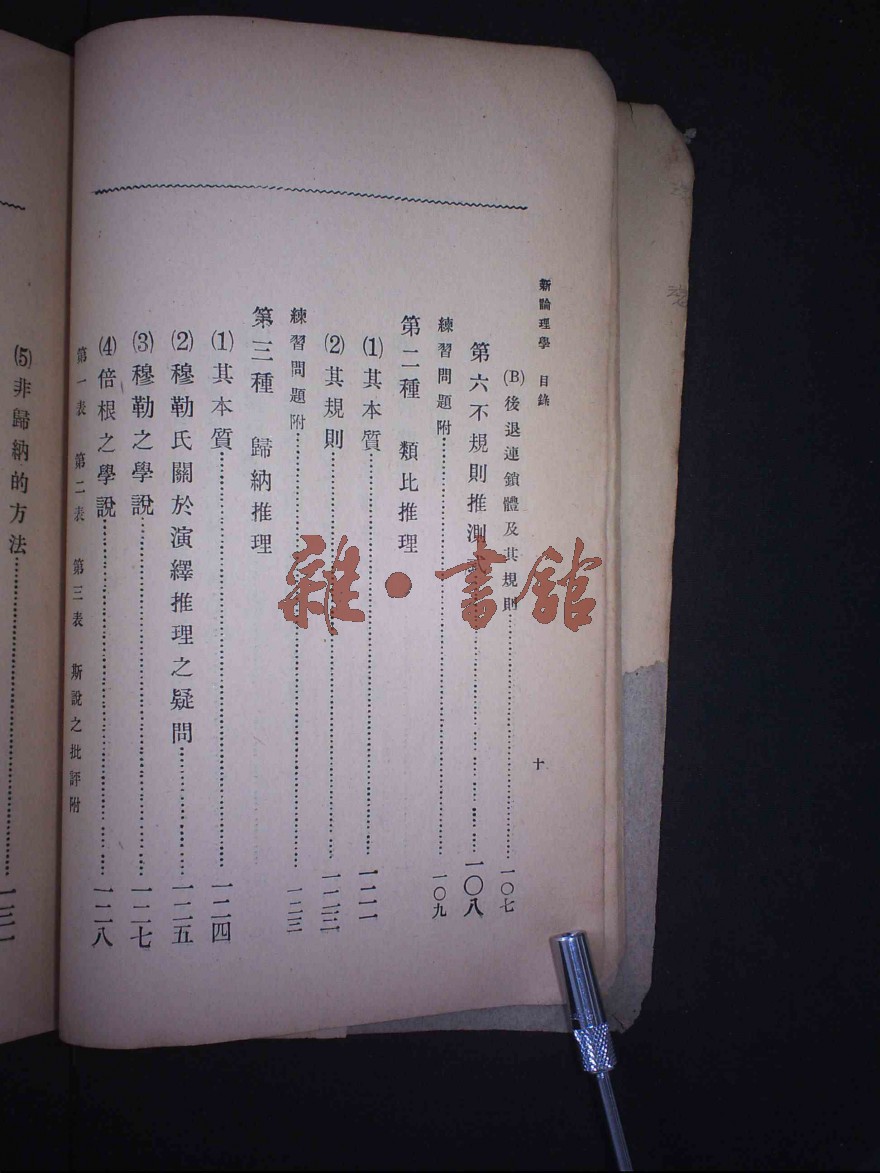 新論理學 目錄 十
(B)後退連鎖體及其規則……一〇七
第六不規則推測式……一〇八
練習問題附……一〇九
第二種 類比推理
(1)其本質……
(2)其規則……
練習問題附……一二三
第三種 歸納推理
(1)其本質……一二四
(2)穆勒氏關於演繹推理之疑問……一二五
(3)穆勒之學說……一二七
(4)倍根之學說……一二八
第一表 第二表 第三表 斯說之批評附
(5)非歸納的方法……
雜·書館